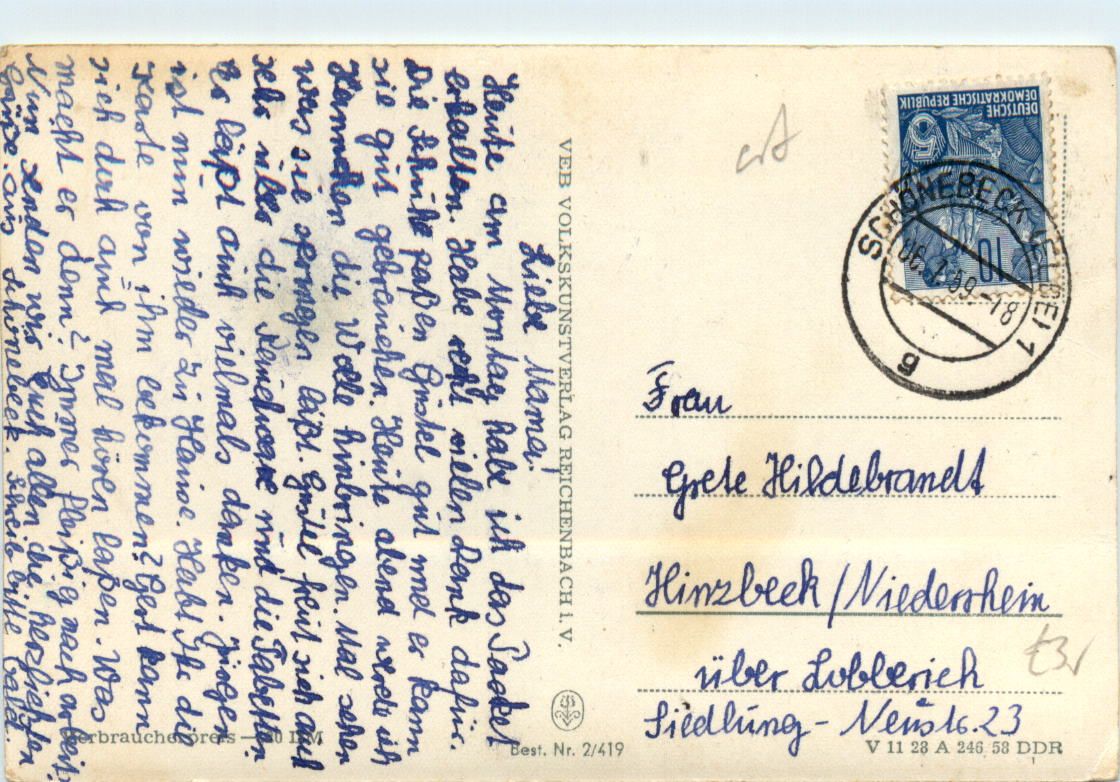 Liebe Mama!
Heute am Montag habe ich das Packet
erhalten. Habe recht vielen Dank dafür.
Die Schuhe paßen Gustel gut und er kann
sie gut gebrauchen. Heute abend werde ich
Hannchen die Wolle hinbringen. Mal sehen
was sie sagen läßt. Gustel freut sich auch
sehr über die Leinchware und die Tabletten.
Er läßt auch vielmals danken. Jürgen
ist nun wieder zu Hause. Habt Ihr die
Karte von ihm bekommen? Gert kann
sich doch auch mal hören laßen. Was
macht er denn? Immer fleißig nach arbeit?
Nun senden wir Euch allen die herzlichsten
Grüße aus Schönebeck. Schreib bitte bald.
VEB VOLKSKUNSTVERLAG REICHENBACH i. V.
DEUTSCHE
DEMOKRATISCHE REPUBLIK
5
10
SCHÖNEBECK (ELBE) 1
06.7.59-18
g
Frau
Grete Hildebrandt
Hinzbeck/Niederrhein
über Lobberich
Siedlung- Neustr. 23
Verbraucherpreis — 20 DM
Best. Nr. 2/419
V 11 28 A 246 58 DDR